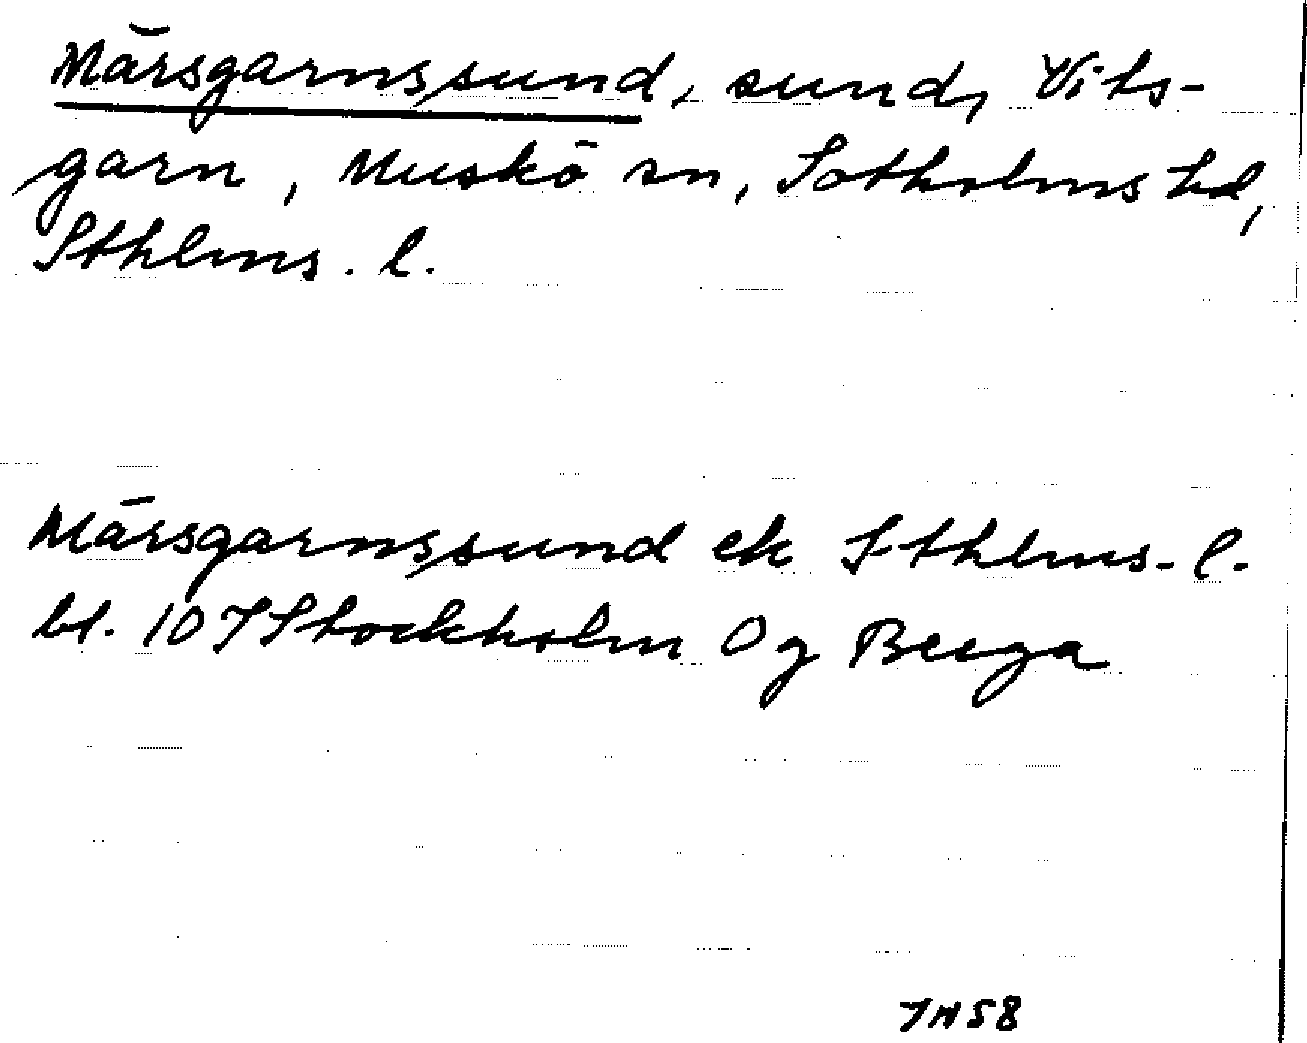 Märsgarnssund, sund, Vits-
garn, Muskö sn, Sotholms hd,
Sthlms. l.
Märsgarnssund ek Sthlms. l.
bl. 10 I Stockholm Og Berga
58